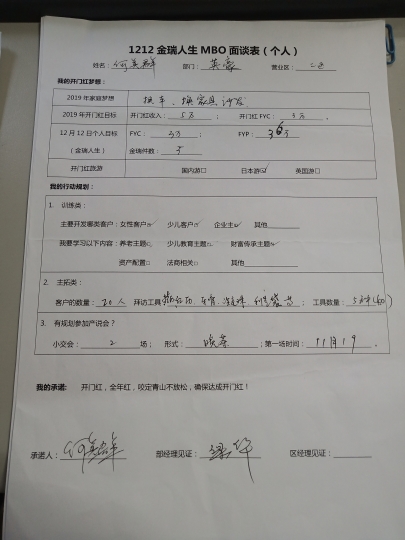 1212 金瑞人生 MBO 面谈表（个人）
姓名：何美群 部门：英豪 营业区：二区
我的开门红梦想：
2019 年家庭梦想 换车、换家具沙发
2019 年开门红目标 开门红收入：5万； 开门红 FYC：3万。
12 月 12 日个人目标 FYC：3万； FYP：36万
（金瑞人生） 金瑞件数：5
开门红旅游 国内游□ 日本游☑ 英国游□
我的行动规划：
1. 训练类：
主要开发哪类客户：女性客户☑ 少儿客户☑ 企业主☑ 其他
我要学习以下内容：养老主题□ 少儿教育主题□ 财富传承主题☑
资产配置□ 法商相关□ 其他
2. 主拓类：
客户的数量：20人 拜访工具 ；工具数量：
3. 有规划参加产说会？
小交会：2 场； 形式： ；第一场时间：11月19。
我的承诺： 开门红，全年红，咬定青山不放松，确保达成开门红！
承诺人：何美群 部经理见证： 区经理见证：